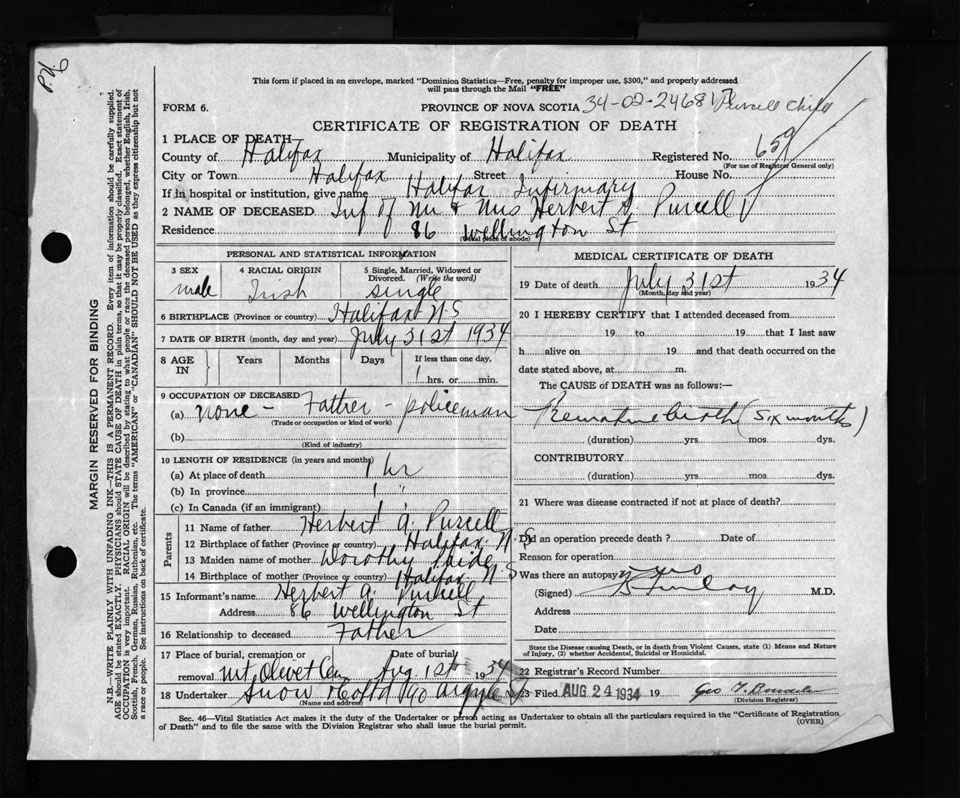 This form if placed in an envelope, marked "Dominion Statistics—Free, penalty for improper use, $300," and properly addressed
will pass through the Mail "FREE"
FORM 6.
PROVINCE OF NOVA SCOTIA 34-02-246817 Purcell Child
CERTIFICATE OF REGISTRATION OF DEATH
1 PLACE OF DEATH
County of Halifax Municipality of Halifax Registered No. 659
(For use of Registrar General only)
City or Town Halifax Street House No.
If in hospital or institution, give name Halifax Infirmary
2 NAME OF DECEASED Inf of Mr & Mrs Herbert A. Purcell
Residence 86 Wellington St
(Usual place of abode)
PERSONAL AND STATISTICAL INFORMATION
3 SEX male
4 RACIAL ORIGIN Irish
5 Single, Married, Widowed or Divorced. (Write the word) single
6 BIRTHPLACE (Province or country) Halifax N.S
7 DATE OF BIRTH (month, day and year) July 31st 1934
8 AGE IN Years Months Days If less than one day, 1 hrs. or min.
9 OCCUPATION OF DECEASED
(a) none - Father - policeman
(Trade or occupation or kind of work)
(b)
(Kind of industry)
10 LENGTH OF RESIDENCE (in years and months)
(a) At place of death 1 hr
(b) In province 1 "
(c) In Canada (if an immigrant)
Parents
11 Name of father Herbert A. Purcell
12 Birthplace of father (Province or country) Halifax N.S
13 Maiden name of mother Dorothy
14 Birthplace of mother (Province or country) Halifax N.S
15 Informant's name Herbert A. Purcell
Address 86 Wellington St
16 Relationship to deceased Father
17 Place of burial, cremation or removal Mt Olivet Cem Date of burial Aug 1st 1934
18 Undertaker Snow 90 Argyle
(Name and address)
MEDICAL CERTIFICATE OF DEATH
19 Date of death July 31st 1934
(Month, day and year)
20 I HEREBY CERTIFY that I attended deceased from
19 to 19 that I last saw
h alive on 19 and that death occurred on the
date stated above, at m.
The CAUSE of DEATH was as follows:—
Premature birth (six months)
(duration) yrs. mos. dys.
CONTRIBUTORY
(duration) yrs. mos. dys.
21 Where was disease contracted if not at place of death?
Did an operation precede death ? Date of
Reason for operation
Was there an autopsy
(Signed) M.D.
Address
Date
State the Disease causing Death, or in death from Violent Causes, state (1) Means and Nature of Injury, (2) whether Accidental, Suicidal or Homicidal.
22 Registrar's Record Number
23 Filed AUG 24 1934 19
(Division Registrar)
Sec. 46—Vital Statistics Act makes it the duty of the Undertaker or person acting as Undertaker to obtain all the particulars required in the "Certificate of Registration
of Death" and to file the same with the Division Registrar who shall issue the burial permit.
(OVER)
MARGIN RESERVED FOR BINDING
N.B.—WRITE PLAINLY WITH UNFADING INK—THIS IS A PERMANENT RECORD. Every item of information should be carefully supplied.
AGE should be stated EXACTLY. PHYSICIANS should STATE CAUSE OF DEATH in plain terms, so that it may be properly classified. Exact statement of
OCCUPATION is very important. RACIAL ORIGIN will be described by stating to what people or race the deceased person belonged, whether English, Irish,
Scottish, French, German, Russian, Ruthenian, etc. The terms "AMERICAN" or "CANADIAN" SHOULD NOT BE USED as they express citizenship but not
a race or people. See instructions on back of certificate.